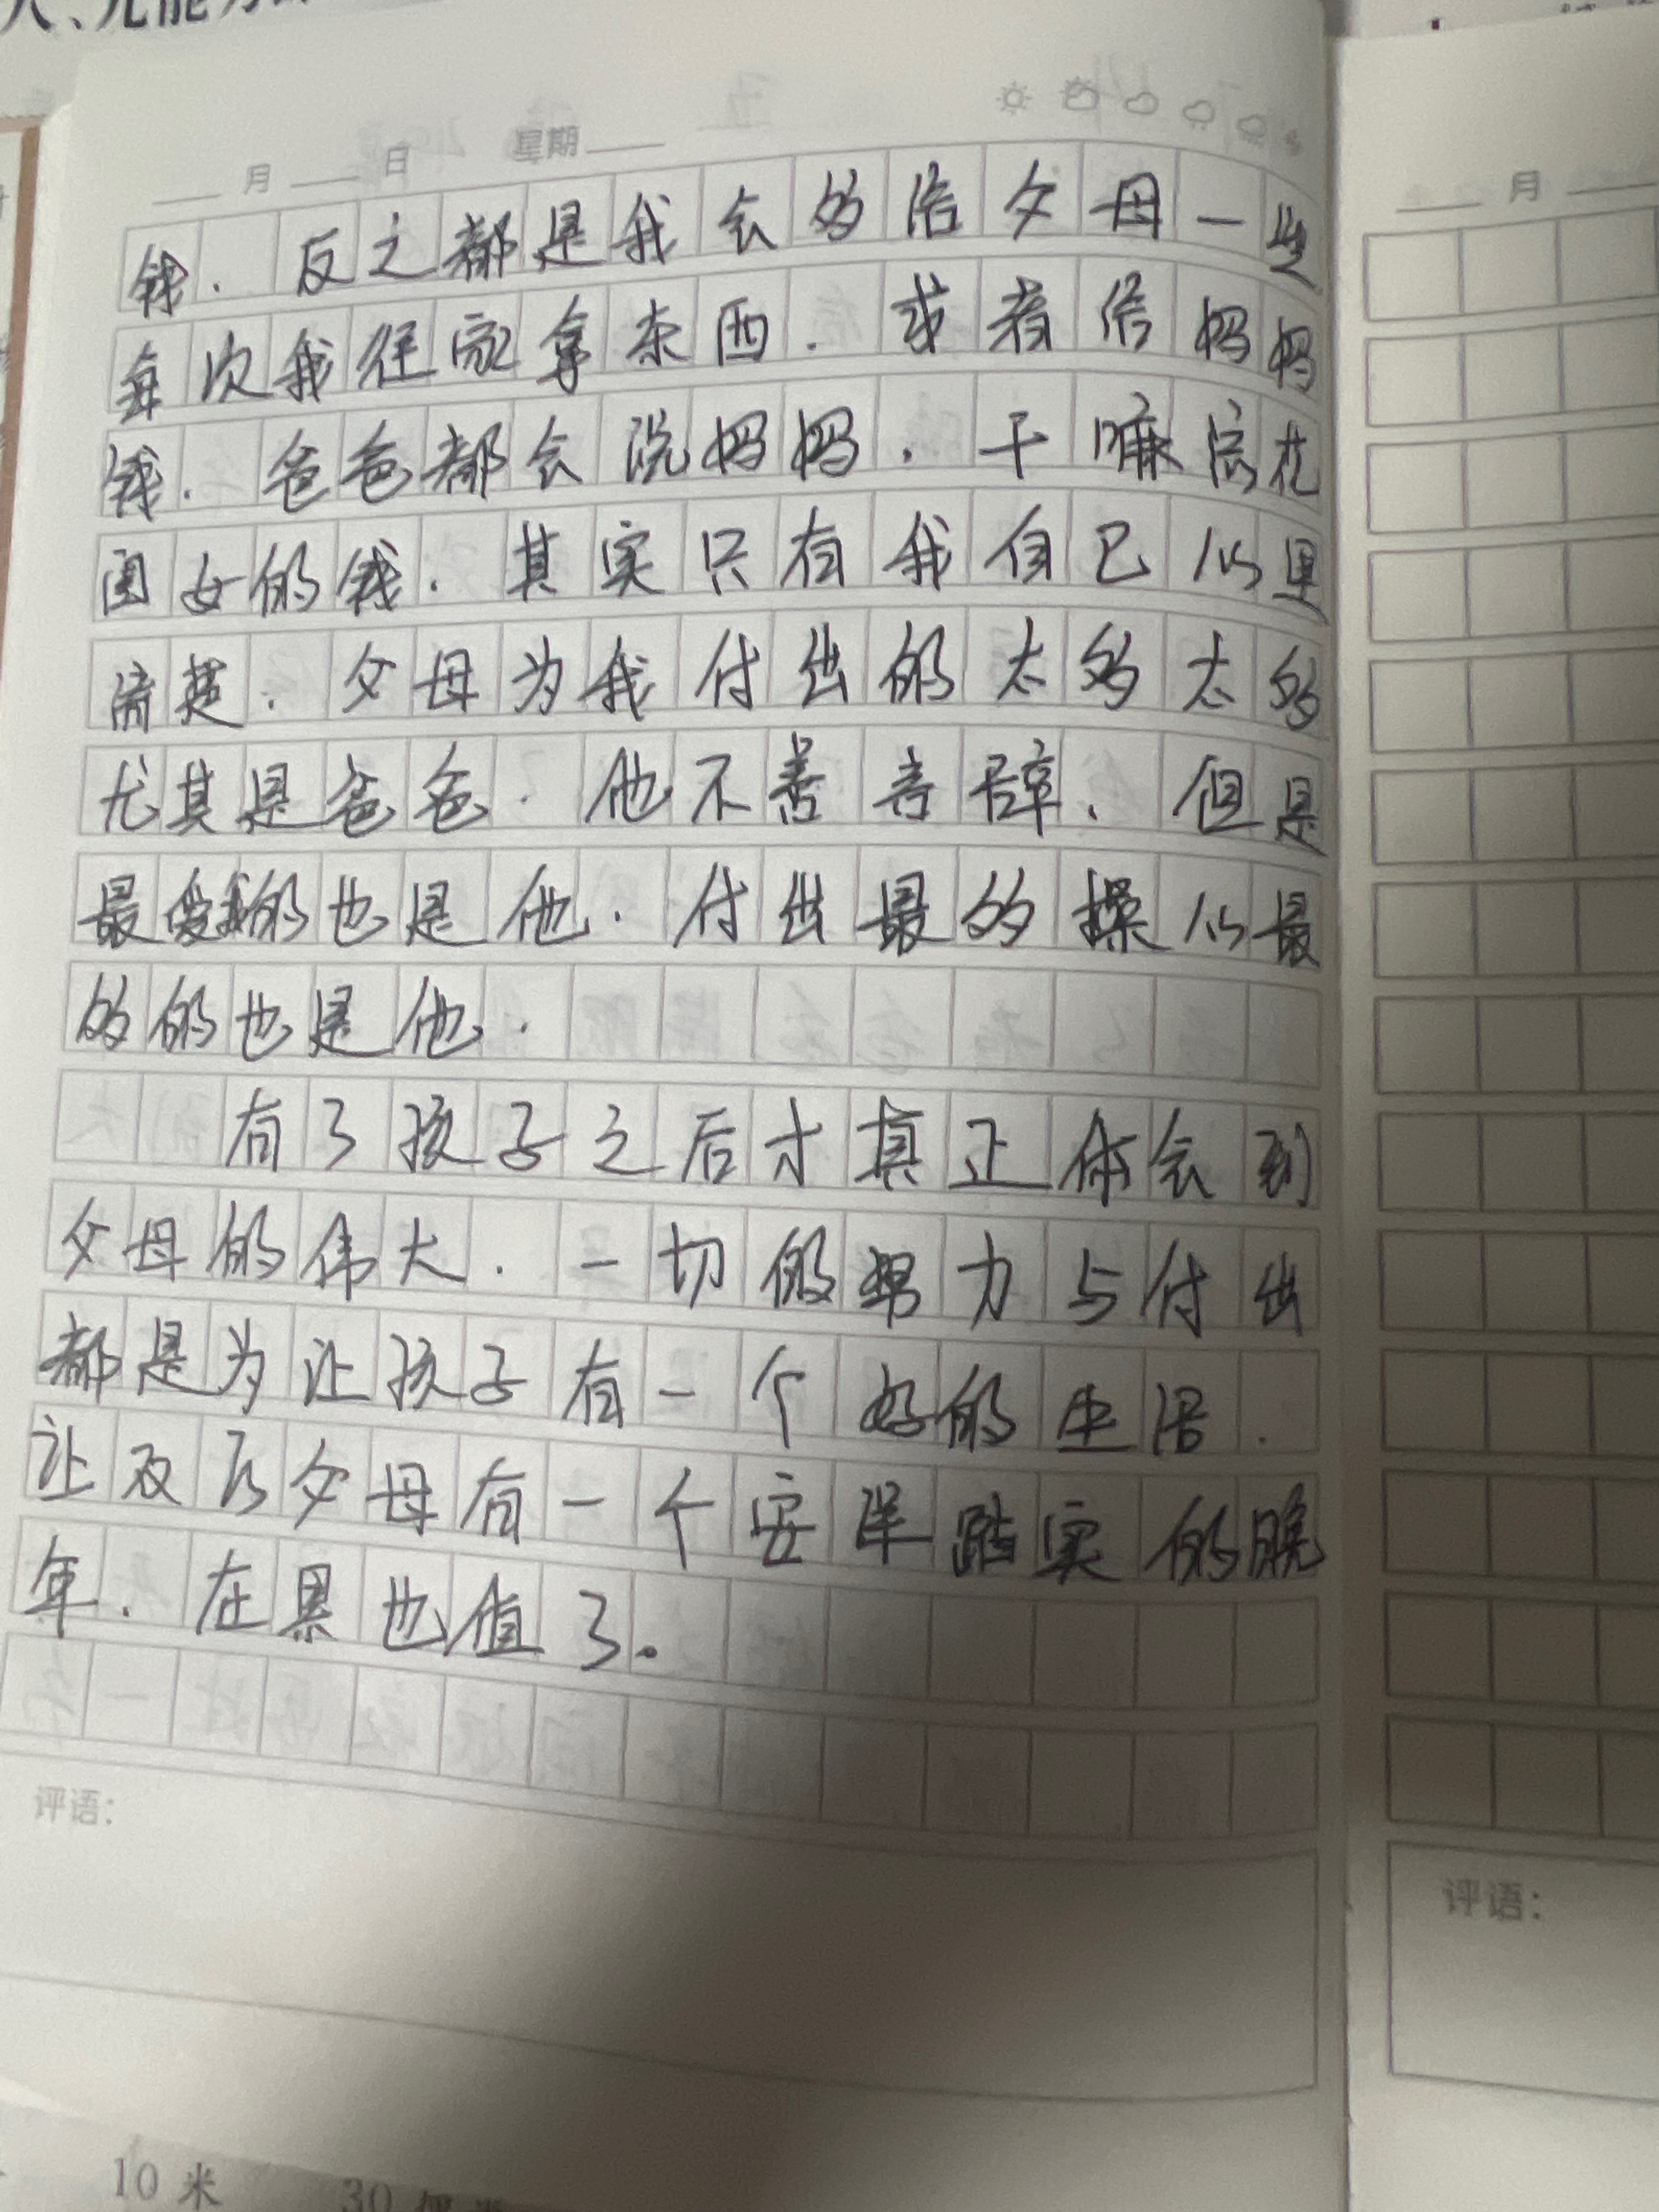 月 日 星期
钱. 反之都是我会多给父母一些
每次我往家拿东西. 或者给妈妈
钱. 爸爸都会说妈妈. 干嘛总花
闺女的钱. 其实只有我自己心里
清楚. 父母为我付出的太多太多
尤其是爸爸. 他不善言辞. 但是
最爱我的也是他. 付出最多操心最
多的也是他.
有了孩子之后才真正体会到
父母的伟大. 一切的努力与付出
都是为让孩子有一个好的生活.
让双方父母有一个安详踏实的晚
年. 在累也值了。
评语:
月
评语:
10 米 30